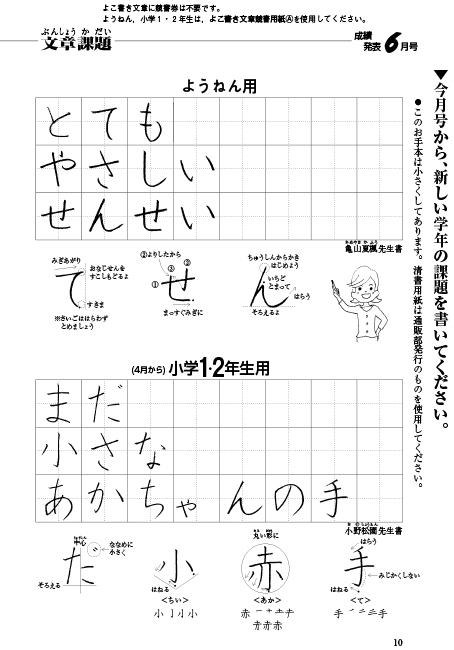 よこ書き文章に競書券は不要です。
ようねん，小学１・２年生は，よこ書き文章競書用紙Ⓐを使用してください。
ぶんしょう か だい
文章課題
成績
発表 6月号
▼今月号から、新しい学年の課題を書いてください。
●このお手本は小さくしてあります。清書用紙は通販部発行のものを使用してください。
ようねん用
とても
やさしい
せんせい
亀山夏楓先生書
みぎあがり
おなじせんを
すこしもどるよ
て
すきま
※さいごははらわず
とめましょう
②よりしたから
②
③
①
せ
まっすぐみぎに
ちゅうしんからかき
はじめよう
いちど
とまって
はらう
ん
そろえるよ
(4月から) 小学1・2年生用
まだ
小さな
あかちゃんの手
小野松園先生書
中心
ななめに
小さく
だ
そろえる
小
はねる
＜ちい＞
小 亅 小 小
丸い形に
赤
＜あか＞
はらう
手
みじかくしない
はねる
＜て＞
10